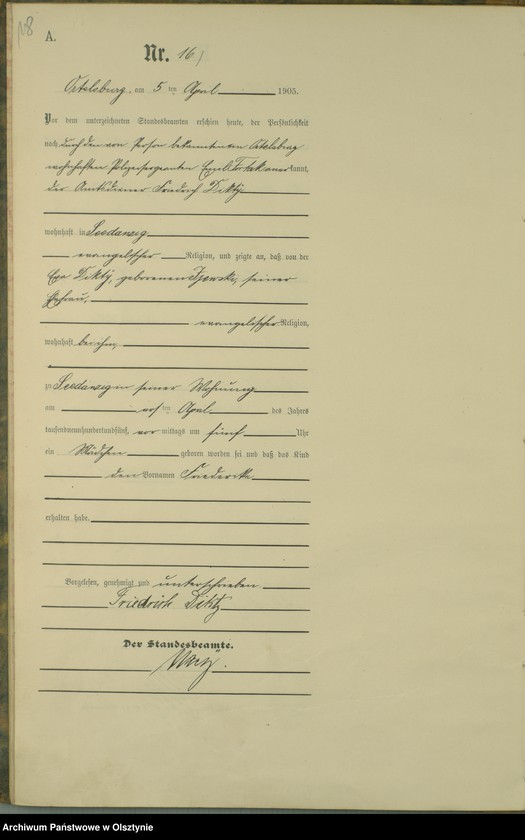 A.
Nr. 16
Ortelsburg, am 5 ten April 1905.
Vor dem unterzeichneten Standesbeamten erschien heute, der Persönlichkeit
nach durch den von Person bekannten in Ortelsburg
wohnhaften Polizeisergeanten Emil kannt,
der Amtsdiener Friedrich Dikty
wohnhaft in Seedanzig
evangelischer Religion, und zeigte an, daß von der
Eva Dikty, geborenen seiner
Ehefrau,
evangelischer Religion,
wohnhaft bei ihm,
zu Seedanzig in seiner Wohnung
am ersten April des Jahres
tausendneunhundertundfünf, vor mittags um fünf Uhr
ein Mädchen geboren worden sei und daß das Kind
den Vornamen Friederike
erhalten habe.
Vorgelesen, genehmigt und unterschrieben
Friedrich Dikty
Der Standesbeamte.
Archiwum Państwowe w Olsztynie